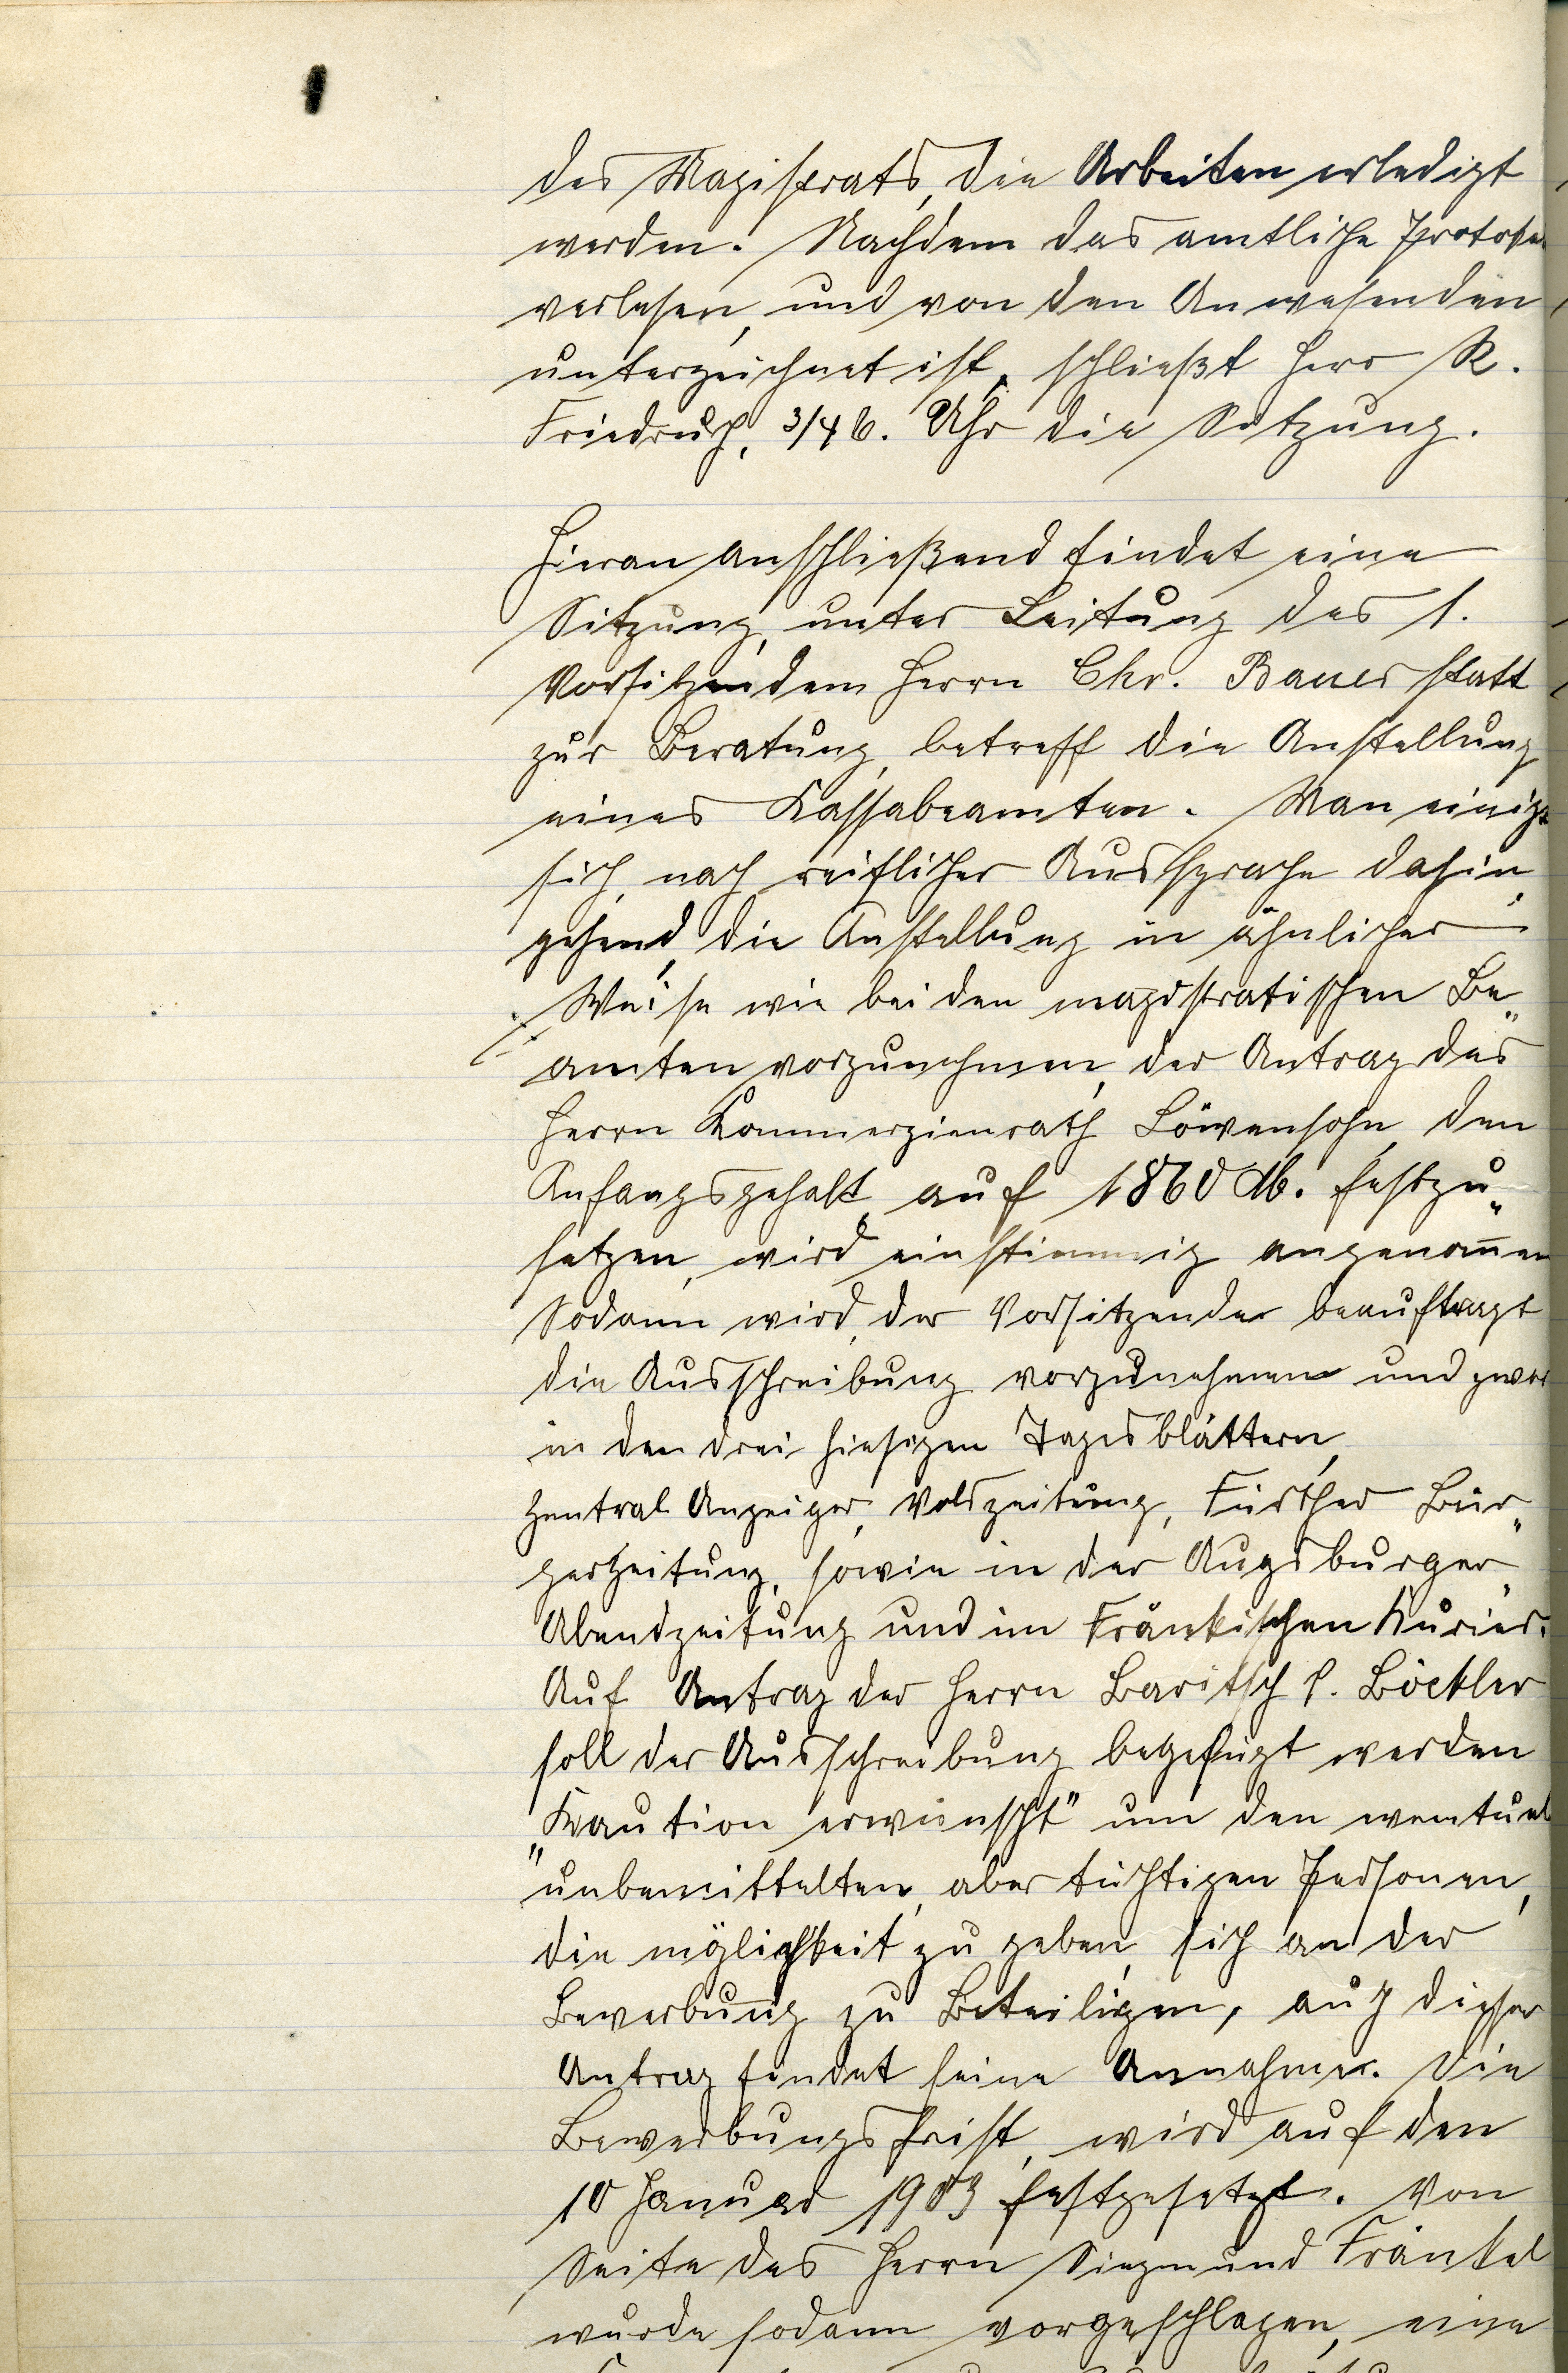 des Magistrats, die Arbeiten erledigt
werden. Nachdem das amtliche Protokol
verlesen, und von den Anwesenden
unterzeichnet ist, schließt Herr R.
Friedrich, 3/4 6. Uhr die Sitzung.
Hieran anschließend findet eine
Sitzung, unter Leitung des 1.
Vorsitzendem Herrn Chr. Bauer statt
zur Beratung, betreff die Anstellung
eines Kassabeamten. Man einigt
sich, nach reiflicher Aussprache dahin
gehend, die Anstellung in ähnlicher
Weise wie bei den magistratischen Be„
amten vorzunehmen, der Antrag des
Herrn Kommerzienrath Löwensohn, den
Anfangsgehalt auf 1860 M. festzu„
setzen, wird einstimmig angenom̅en
Sodann wird, der Vorsitzende beauftragt
die Ausschreibung vorzunehmen und zwar
in den drei hiesigen Tagesblättern,
Zentral Anzeiger, Volkszeitung, Fürther Bür„
gerzeitung, sowie in der Augsburger„
Abendzeitung und im Fränkischen Kurier.
Auf Antrag der Herrn Baritsch &. Böckler
soll der Ausschreibung beigefügt werden
„Kaution erwünscht" um den eventuel
unbemittelten, aber tüchtigen Personen,
die möglichkeit zu geben, sich an der
Bewerbung zu Beteiligen, auch dieser
Antrag findet seine Annahme. Die
Bewerbungsfrist, wird auf den
10 Januar 1903 festgesetzt. Von
Seite des Herrn Siegmund Fränkel
wurde sodann vorgeschlagen, eine